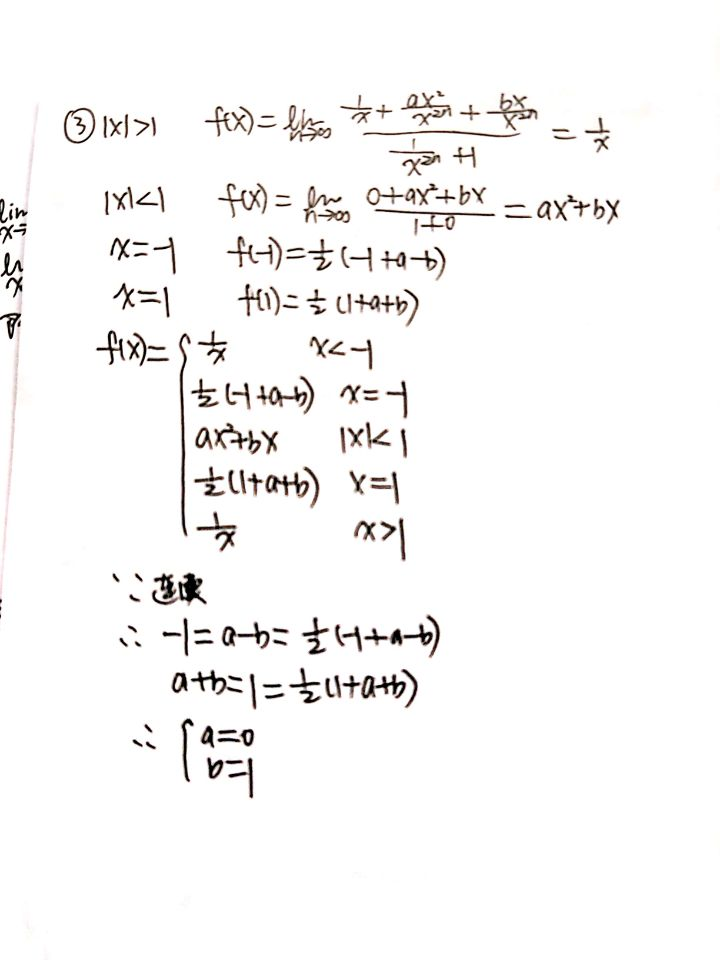 ③ |x|>1 f(x)= lim n→∞ (1/x + ax²/x²ⁿ + bx/x²ⁿ)/(1/x²ⁿ +1) = 1/x
|x|<1 f(x)= lim n→∞ (0+ax²+bx)/(1+0) = ax²+bx
x=-1 f(-1)=½(-1+a-b)
x=1 f(1)=½(1+a+b)
f(x)={ 1/x x<-1
½(-1+a-b) x=-1
ax²+bx |x|<1
½(1+a+b) x=1
1/x x>1
∵连续
∴ -1=a-b=½(-1+a-b)
a+b=1=½(1+a+b)
∴ { a=0
b=1
lim
x→